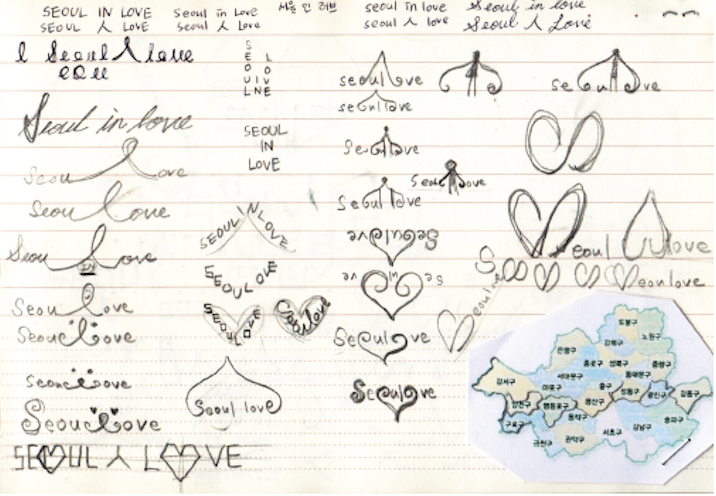 SEOUL IN LOVE
SEOUL 人 LOVE
seoul in love
seoul 人 love
서울 인 러브
seoul in love
seoul 人 love
Seoul in love
Seoul 人 Love
I Seoul 人 love
SEOUL
IN
LOVE
seoulove
seoulove
Seoul in love
SEOUL
IN
LOVE
Seoulove
Seoulove
Seoulove
Seoulove
Seoulove
Seoulove
SEOUL IN LOVE
Seoulove
Seoulove
IN
Seoul love
SEOULOVE
Seoulove
Seoulove
SEOULOVE
Seoulove
Seoulove
Seoulove
Seoul love
Seoulove
Seoulove
SEOUL 人 LOVE
도봉구
노원구
강북구
은평구
종로구
성북구
중랑구
서대문구
동대문구
강서구
마포구
중구
성동구
광진구
강동구
양천구
영등포구
용산구
구로구
동작구
서초구
강남구
송파구
금천구
관악구